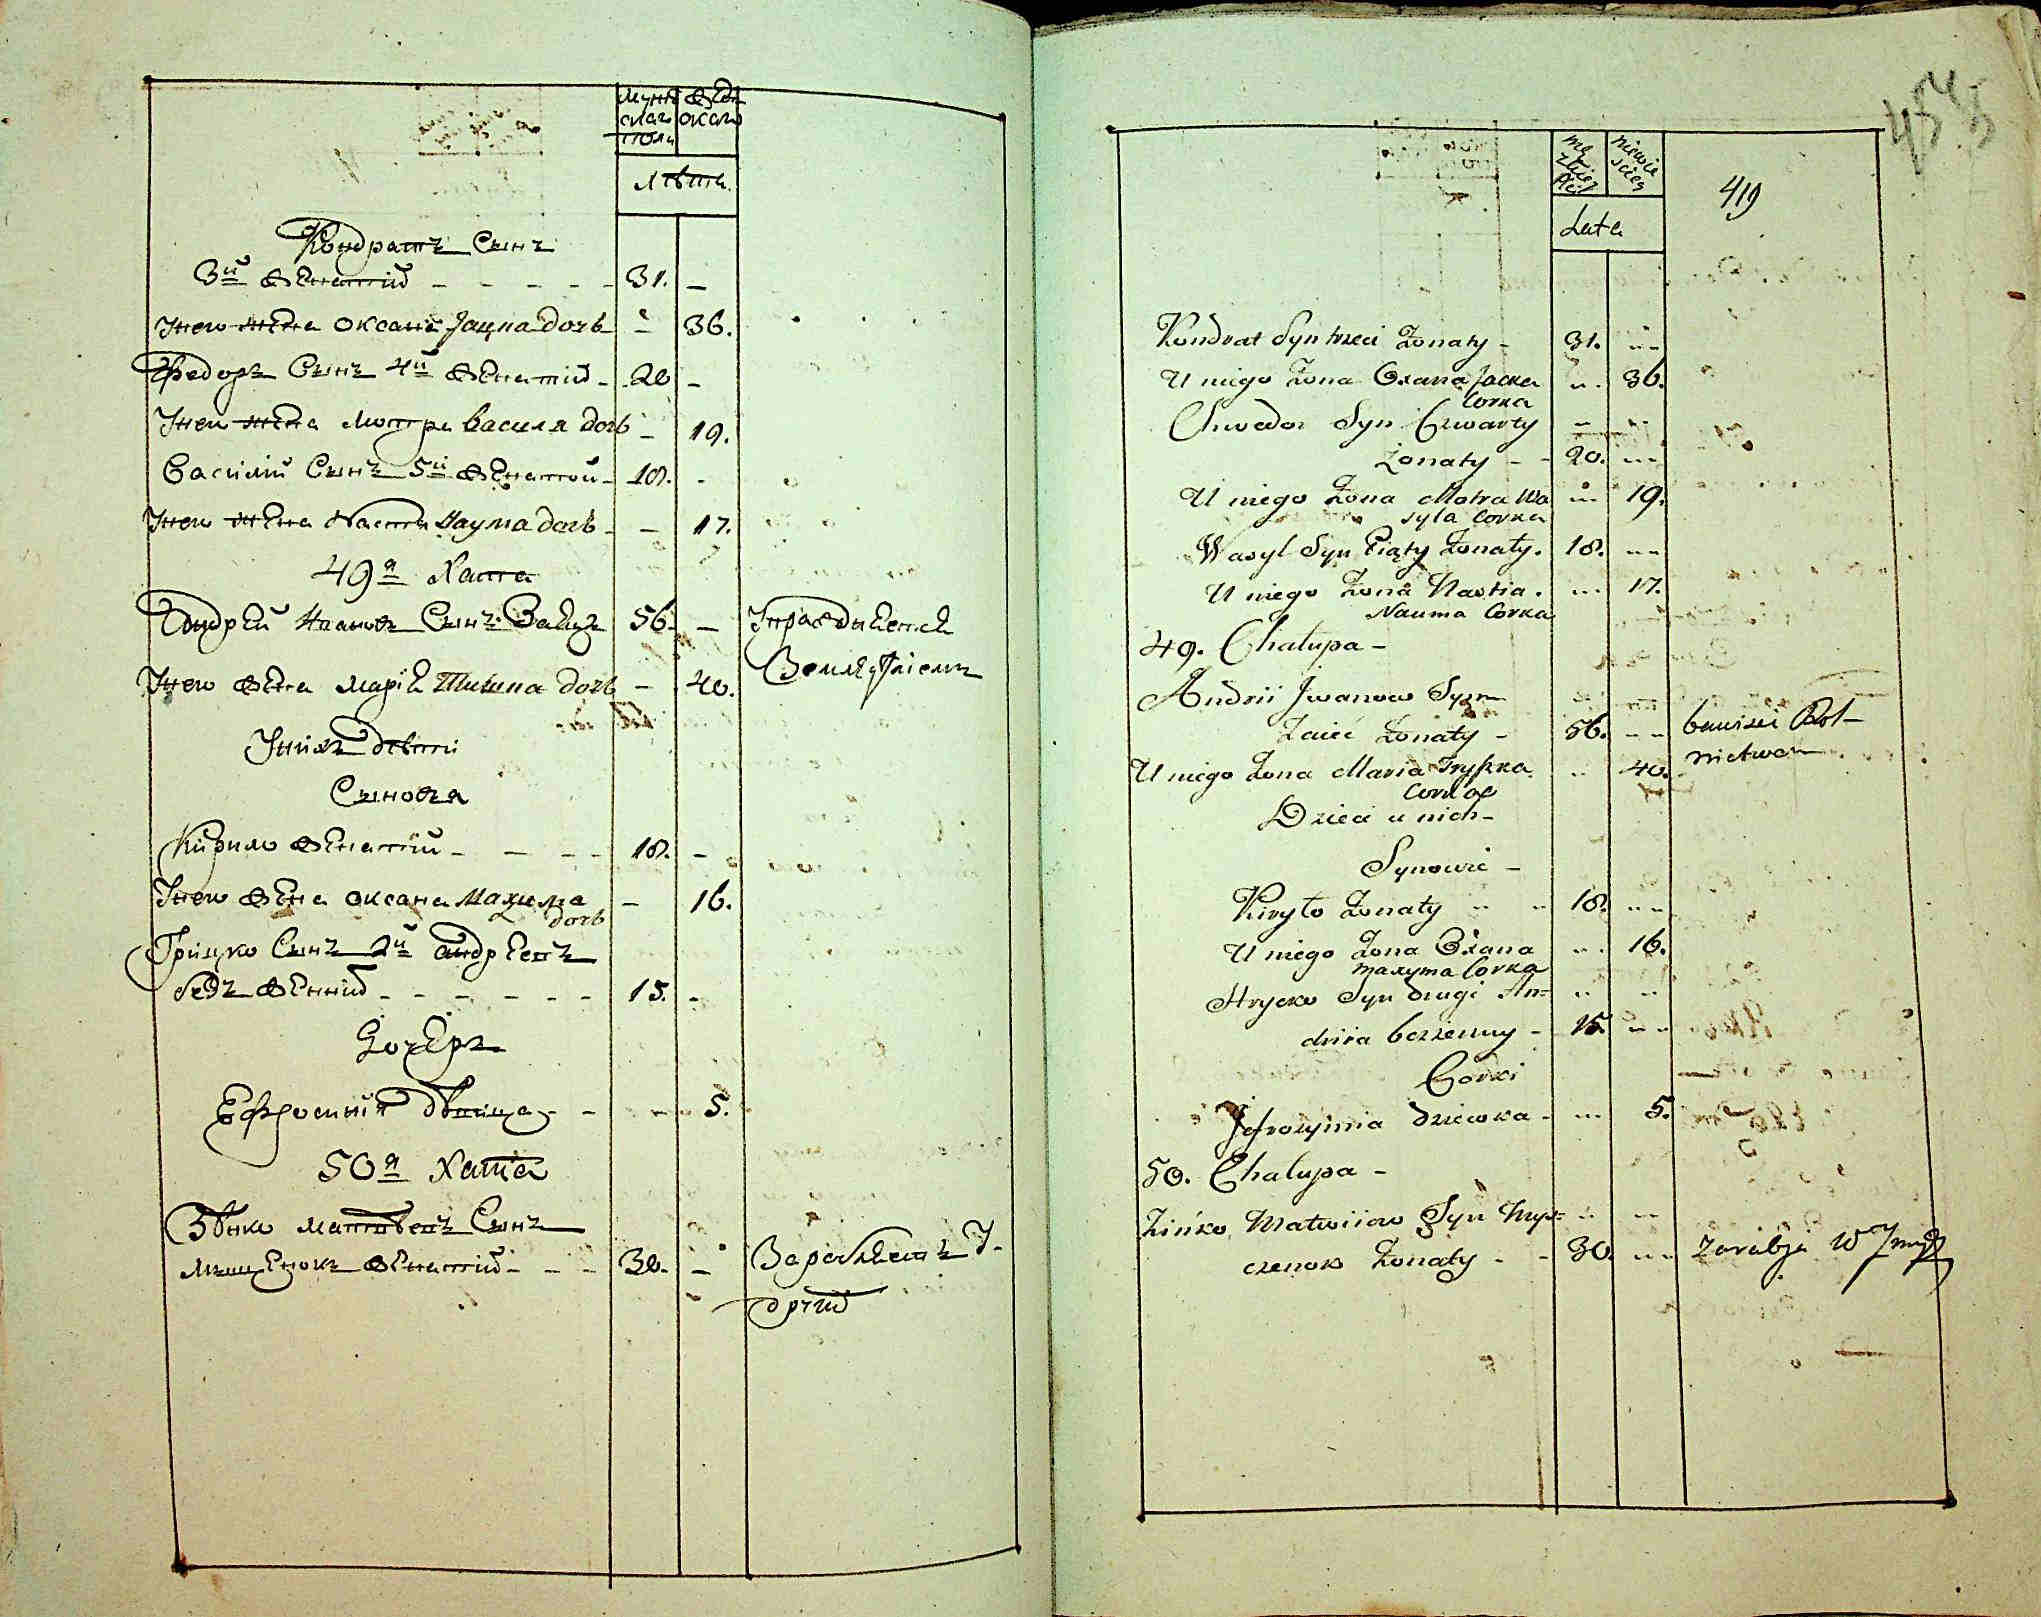 мужскаго пола
женскаго
Лѣта
Кондратъ Сынъ
3й женатій 31. —
Унего жена Оксана Яцка дочь — 36.
Федоръ Сынъ 4й женатій 20 —
Унего жена Мотря Василя дочь — 19.
Василій Сынъ 5й женатой 18. —
Унего жена Настя Наума дочь — 17.
49я Хата
Андрѣй Ивановъ Сынъ Заецъ 56. —
Унего жена Марія дочь — 40.
Унихъ дѣти
Сыновя
Кирило женатій 18. —
Унего жена Оксана Махима — 16.
дочь
Грицко Сынъ 2й Андрѣевъ
женній 15. —
Дочѣръ
Ефросинія дѣвица — 5.
50я Хата
Зѣнко Матвѣевъ Сынъ
женатій 30. —
męzkiey płci
niewiesciey
Lata
419
Kondrat Syn trzeci Żonaty 31.
U niego Żona Oxana Jacka 36.
Corka
Chwedor Syn Czwarty
Żonaty 20.
U niego Żona Motra Wa 19.
syla Corka
Wasyl Syn Piąty Żonaty. 18.
U niego Żona Nastia. 17.
Nauma Corka
49. Chalupa
Andrii Jwanow Syn
Zaieć Żonaty 56. bawisie Rol
nictwem
U niego Żona Maria Tryszka 40.
Corka
Dzieci u nich
Synowie
Kiryło Żonaty 18.
U niego Żona Oxana 16.
maxyma Corka
Hrycko Syn drugi An=
driia bezżenny 15.
Corki
Jefrozynia dziewka 5.
50. Chalupa
Zińko Matwiiow Syn
czenok Żonaty 30. zarabja w